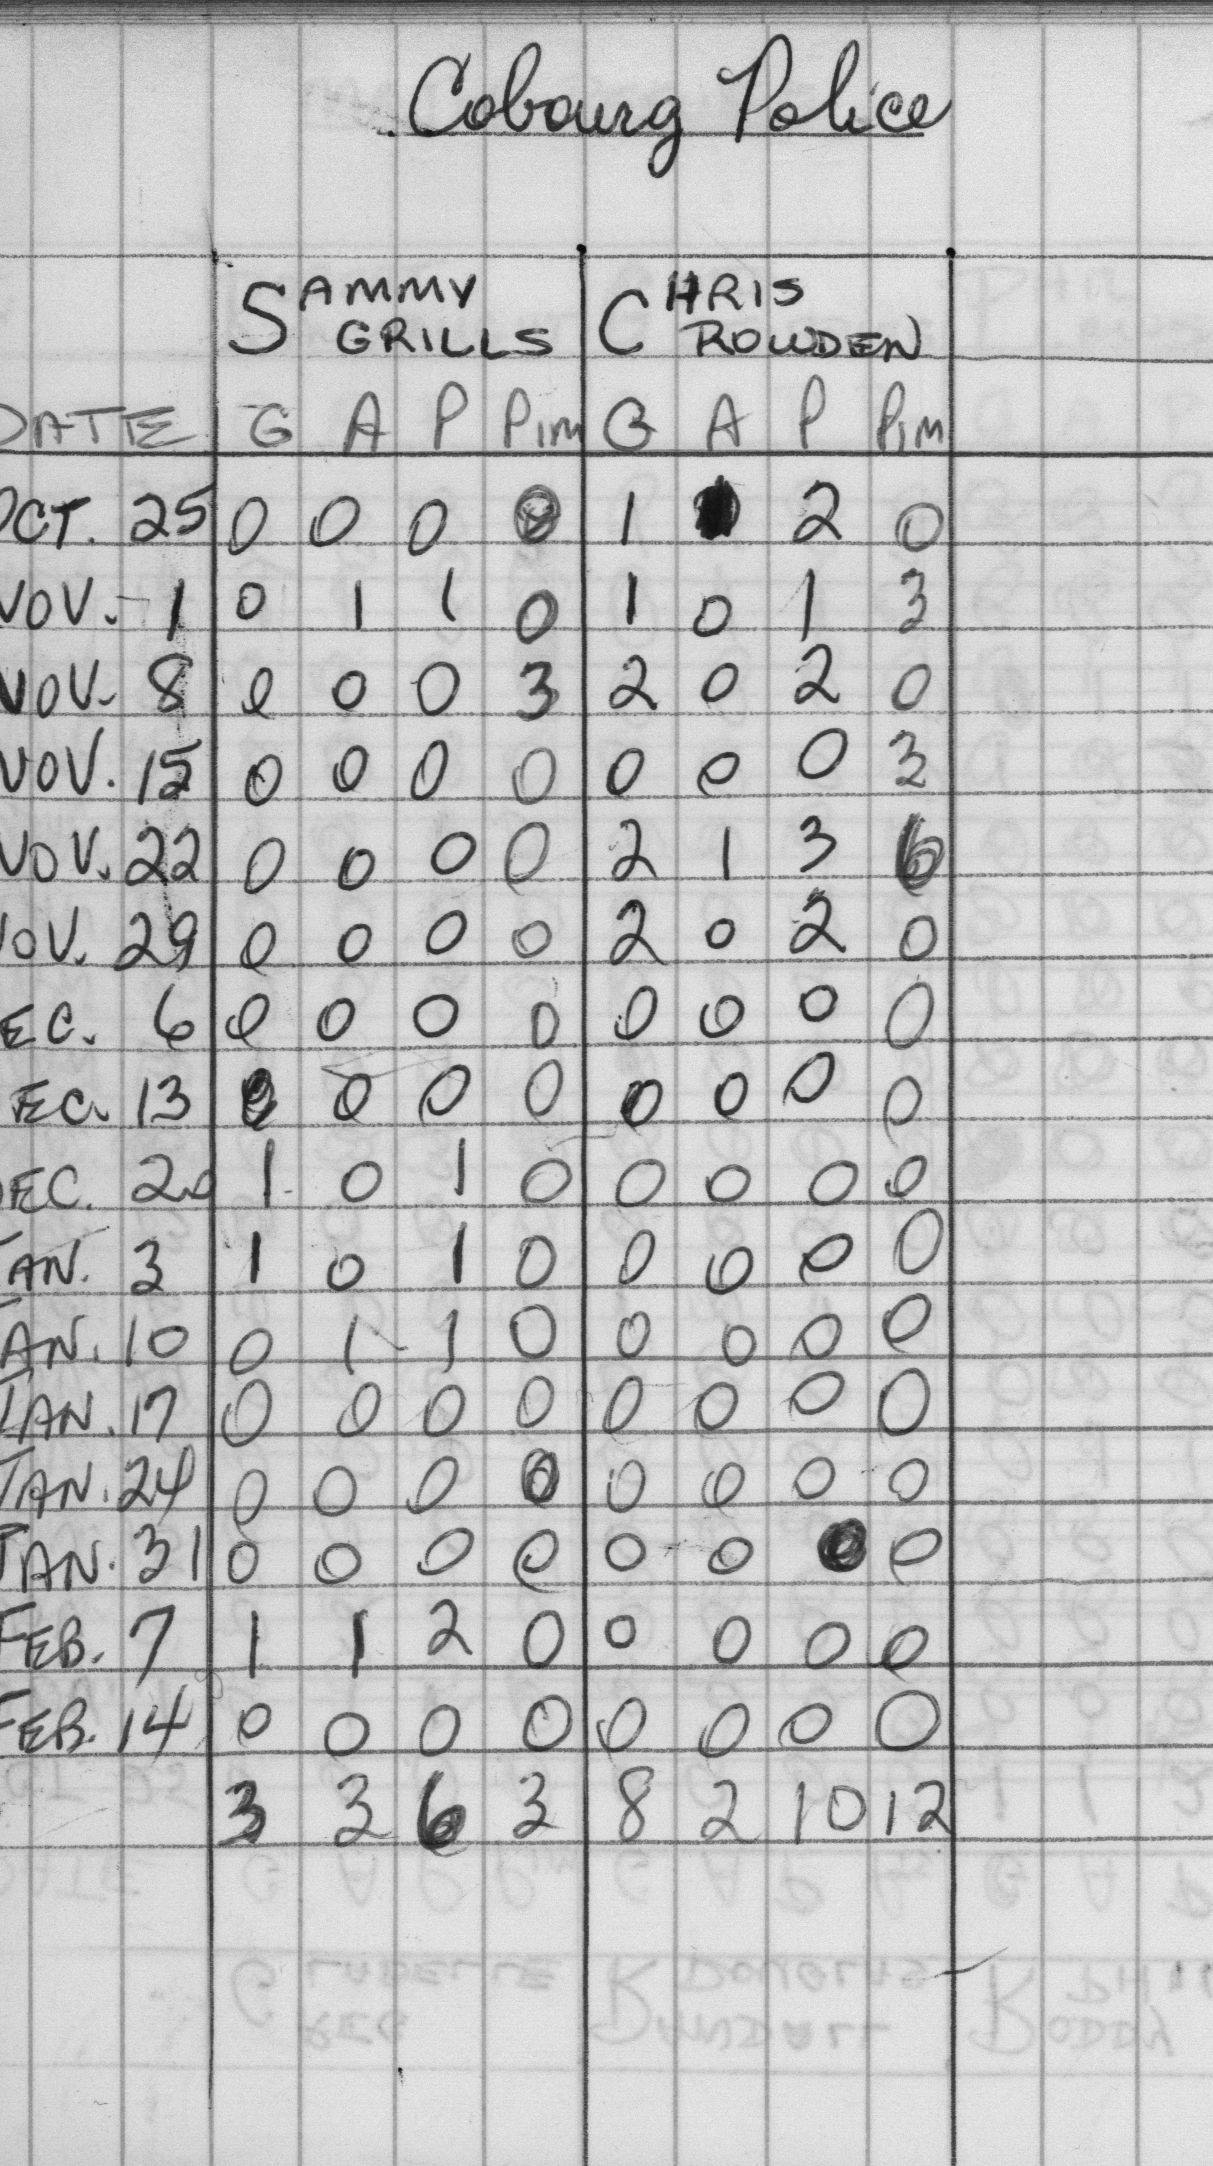 Cobourg Police
SAMMY GRILLS CHRIS ROWDEN
DATE G A P Pim G A P Pim
OCT. 25 0 0 0 0 1 1 2 0
NOV. 1 0 1 1 0 1 0 1 3
NOV. 8 0 0 0 3 2 0 2 0
NOV. 15 0 0 0 0 0 0 0 3
NOV. 22 0 0 0 0 2 1 3 6
NOV. 29 0 0 0 0 2 0 2 0
EC. 6 0 0 0 0 0 0 0 0
EC. 13 0 0 0 0 0 0 0 0
DEC. 20 1 0 1 0 0 0 0 0
JAN. 3 1 0 1 0 0 0 0 0
JAN. 10 0 1 1 0 0 0 0 0
JAN. 17 0 0 0 0 0 0 0 0
JAN. 24 0 0 0 0 0 0 0 0
JAN. 31 0 0 0 0 0 0 0 0
FEB. 7 1 1 2 0 0 0 0 0
FEB. 14 0 0 0 0 0 0 0 0
3 3 6 3 8 2 10 12